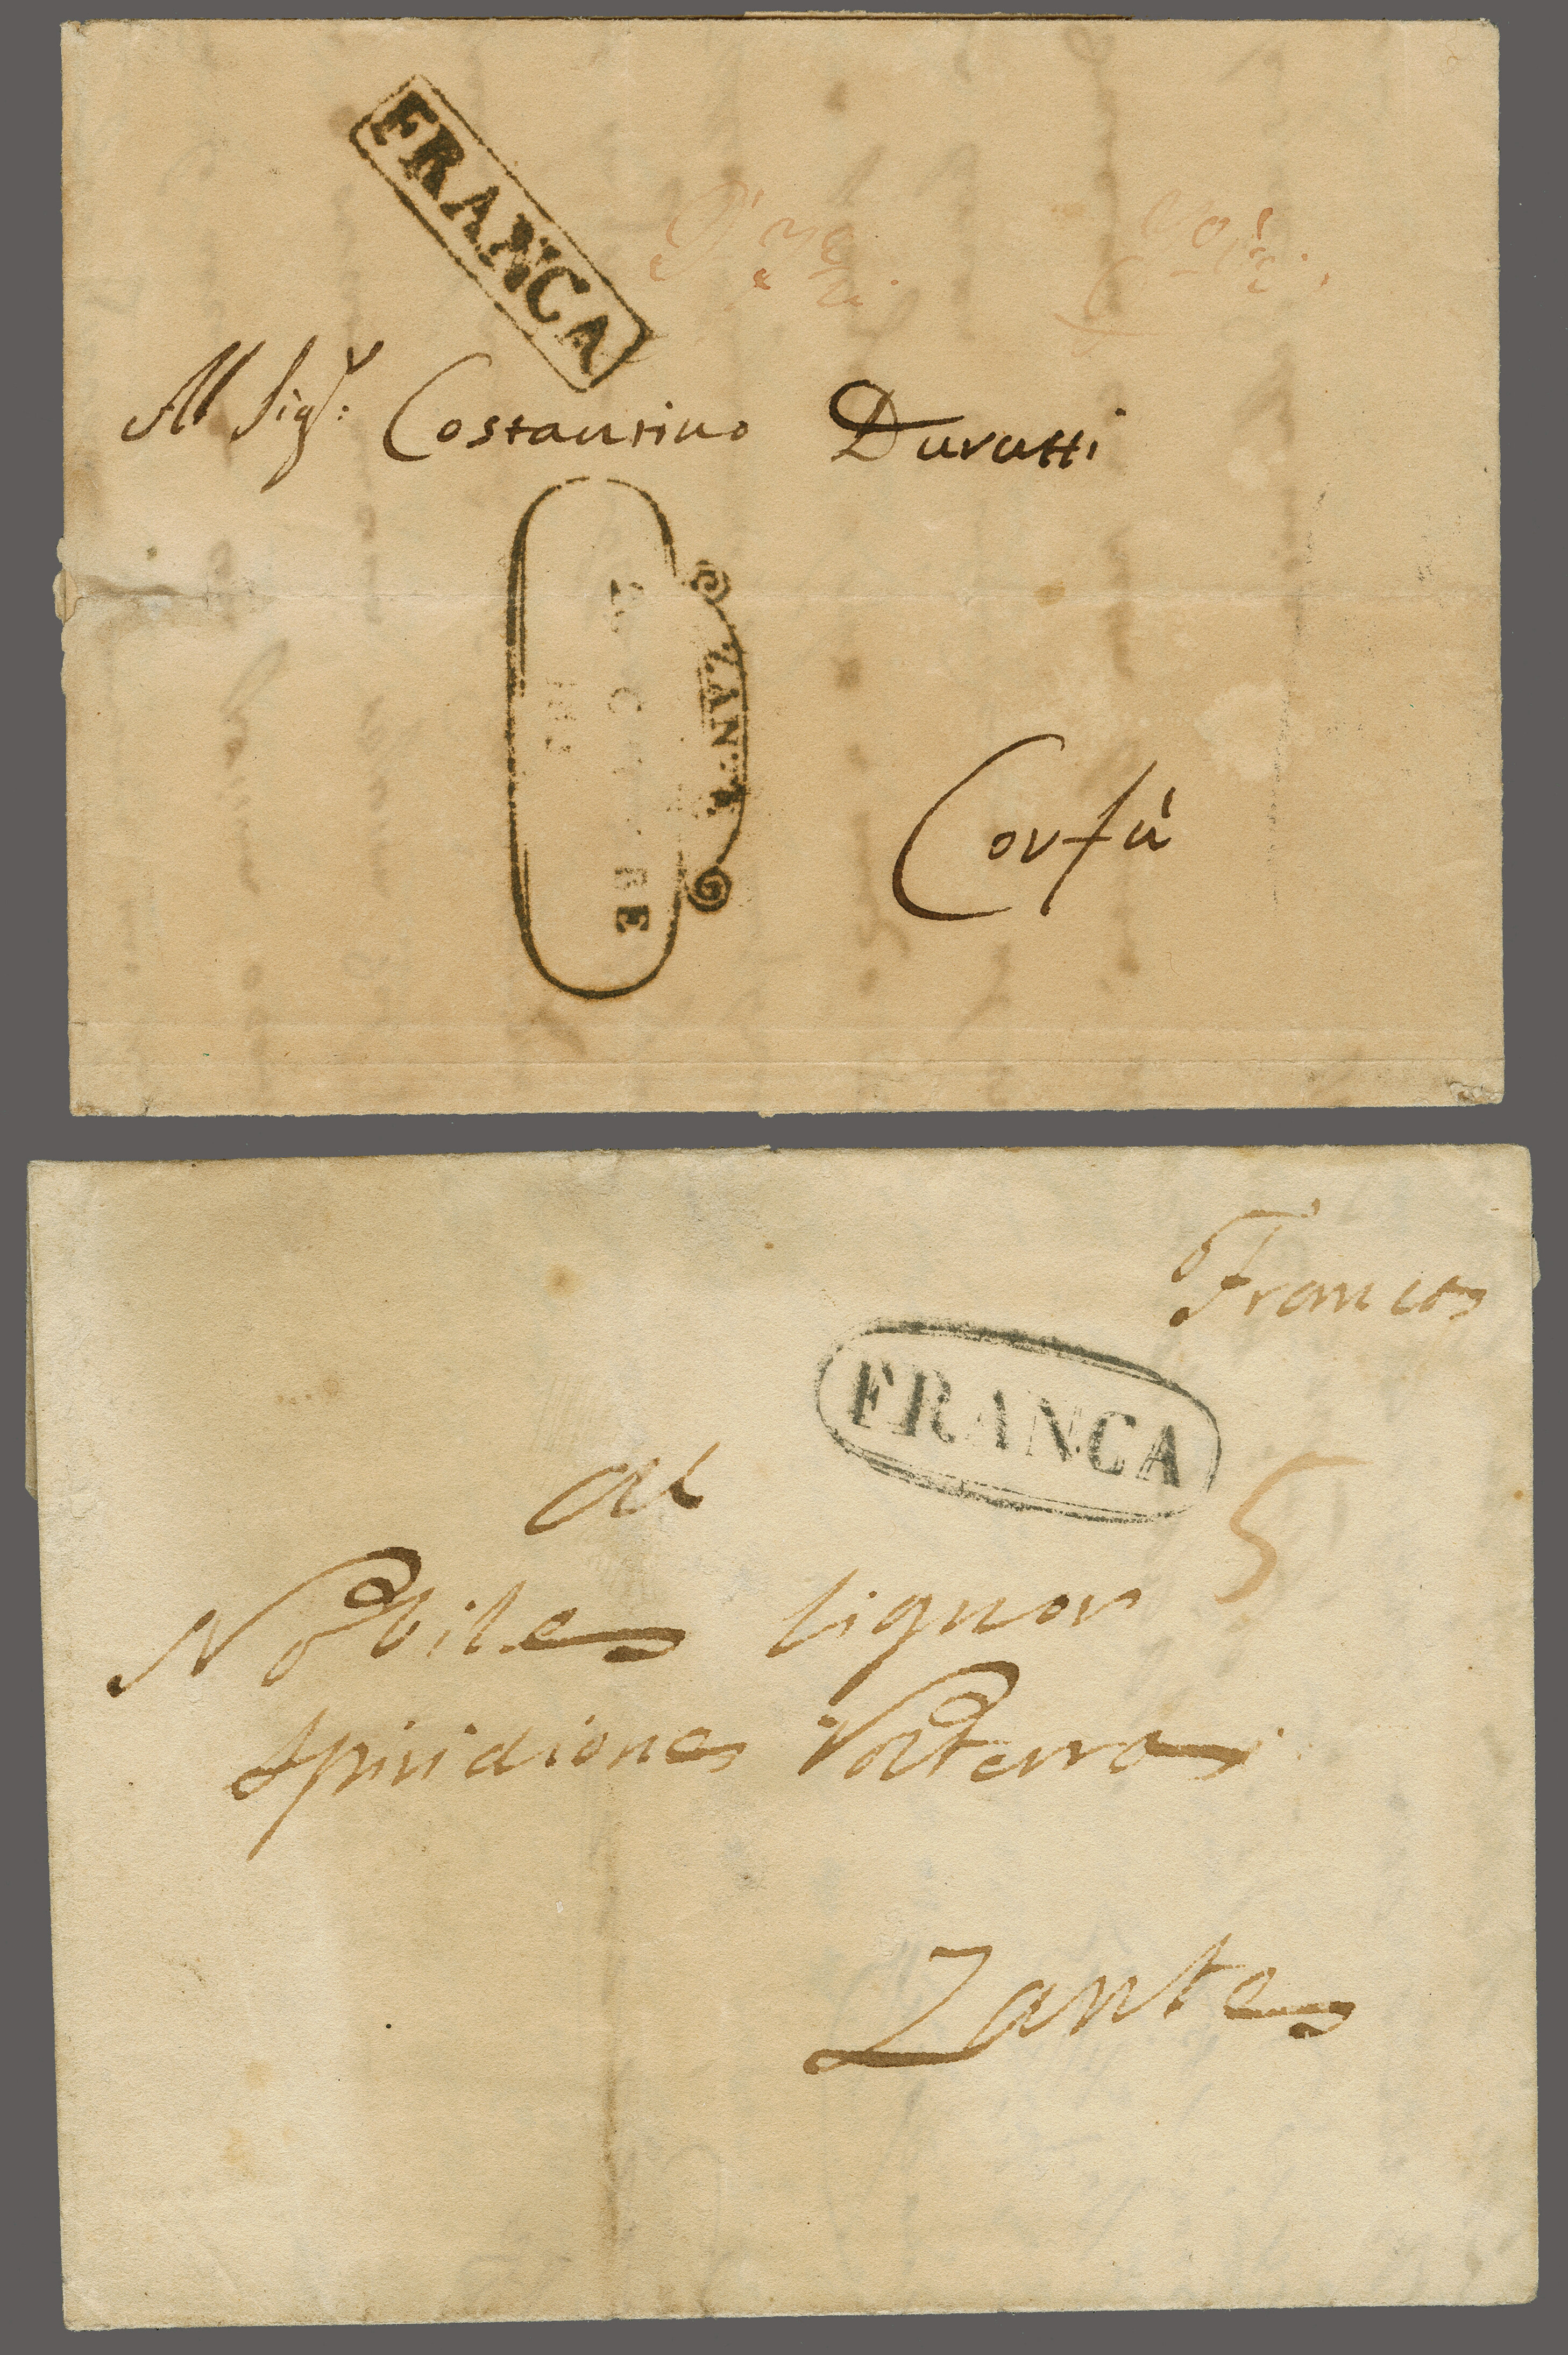 FRANCA
Al Sigr: Costantino Durutti
ZANTE
Corfù
Franca
FRANCA
Al
5
Nobile Signor
Spiridione Volterra
Zante